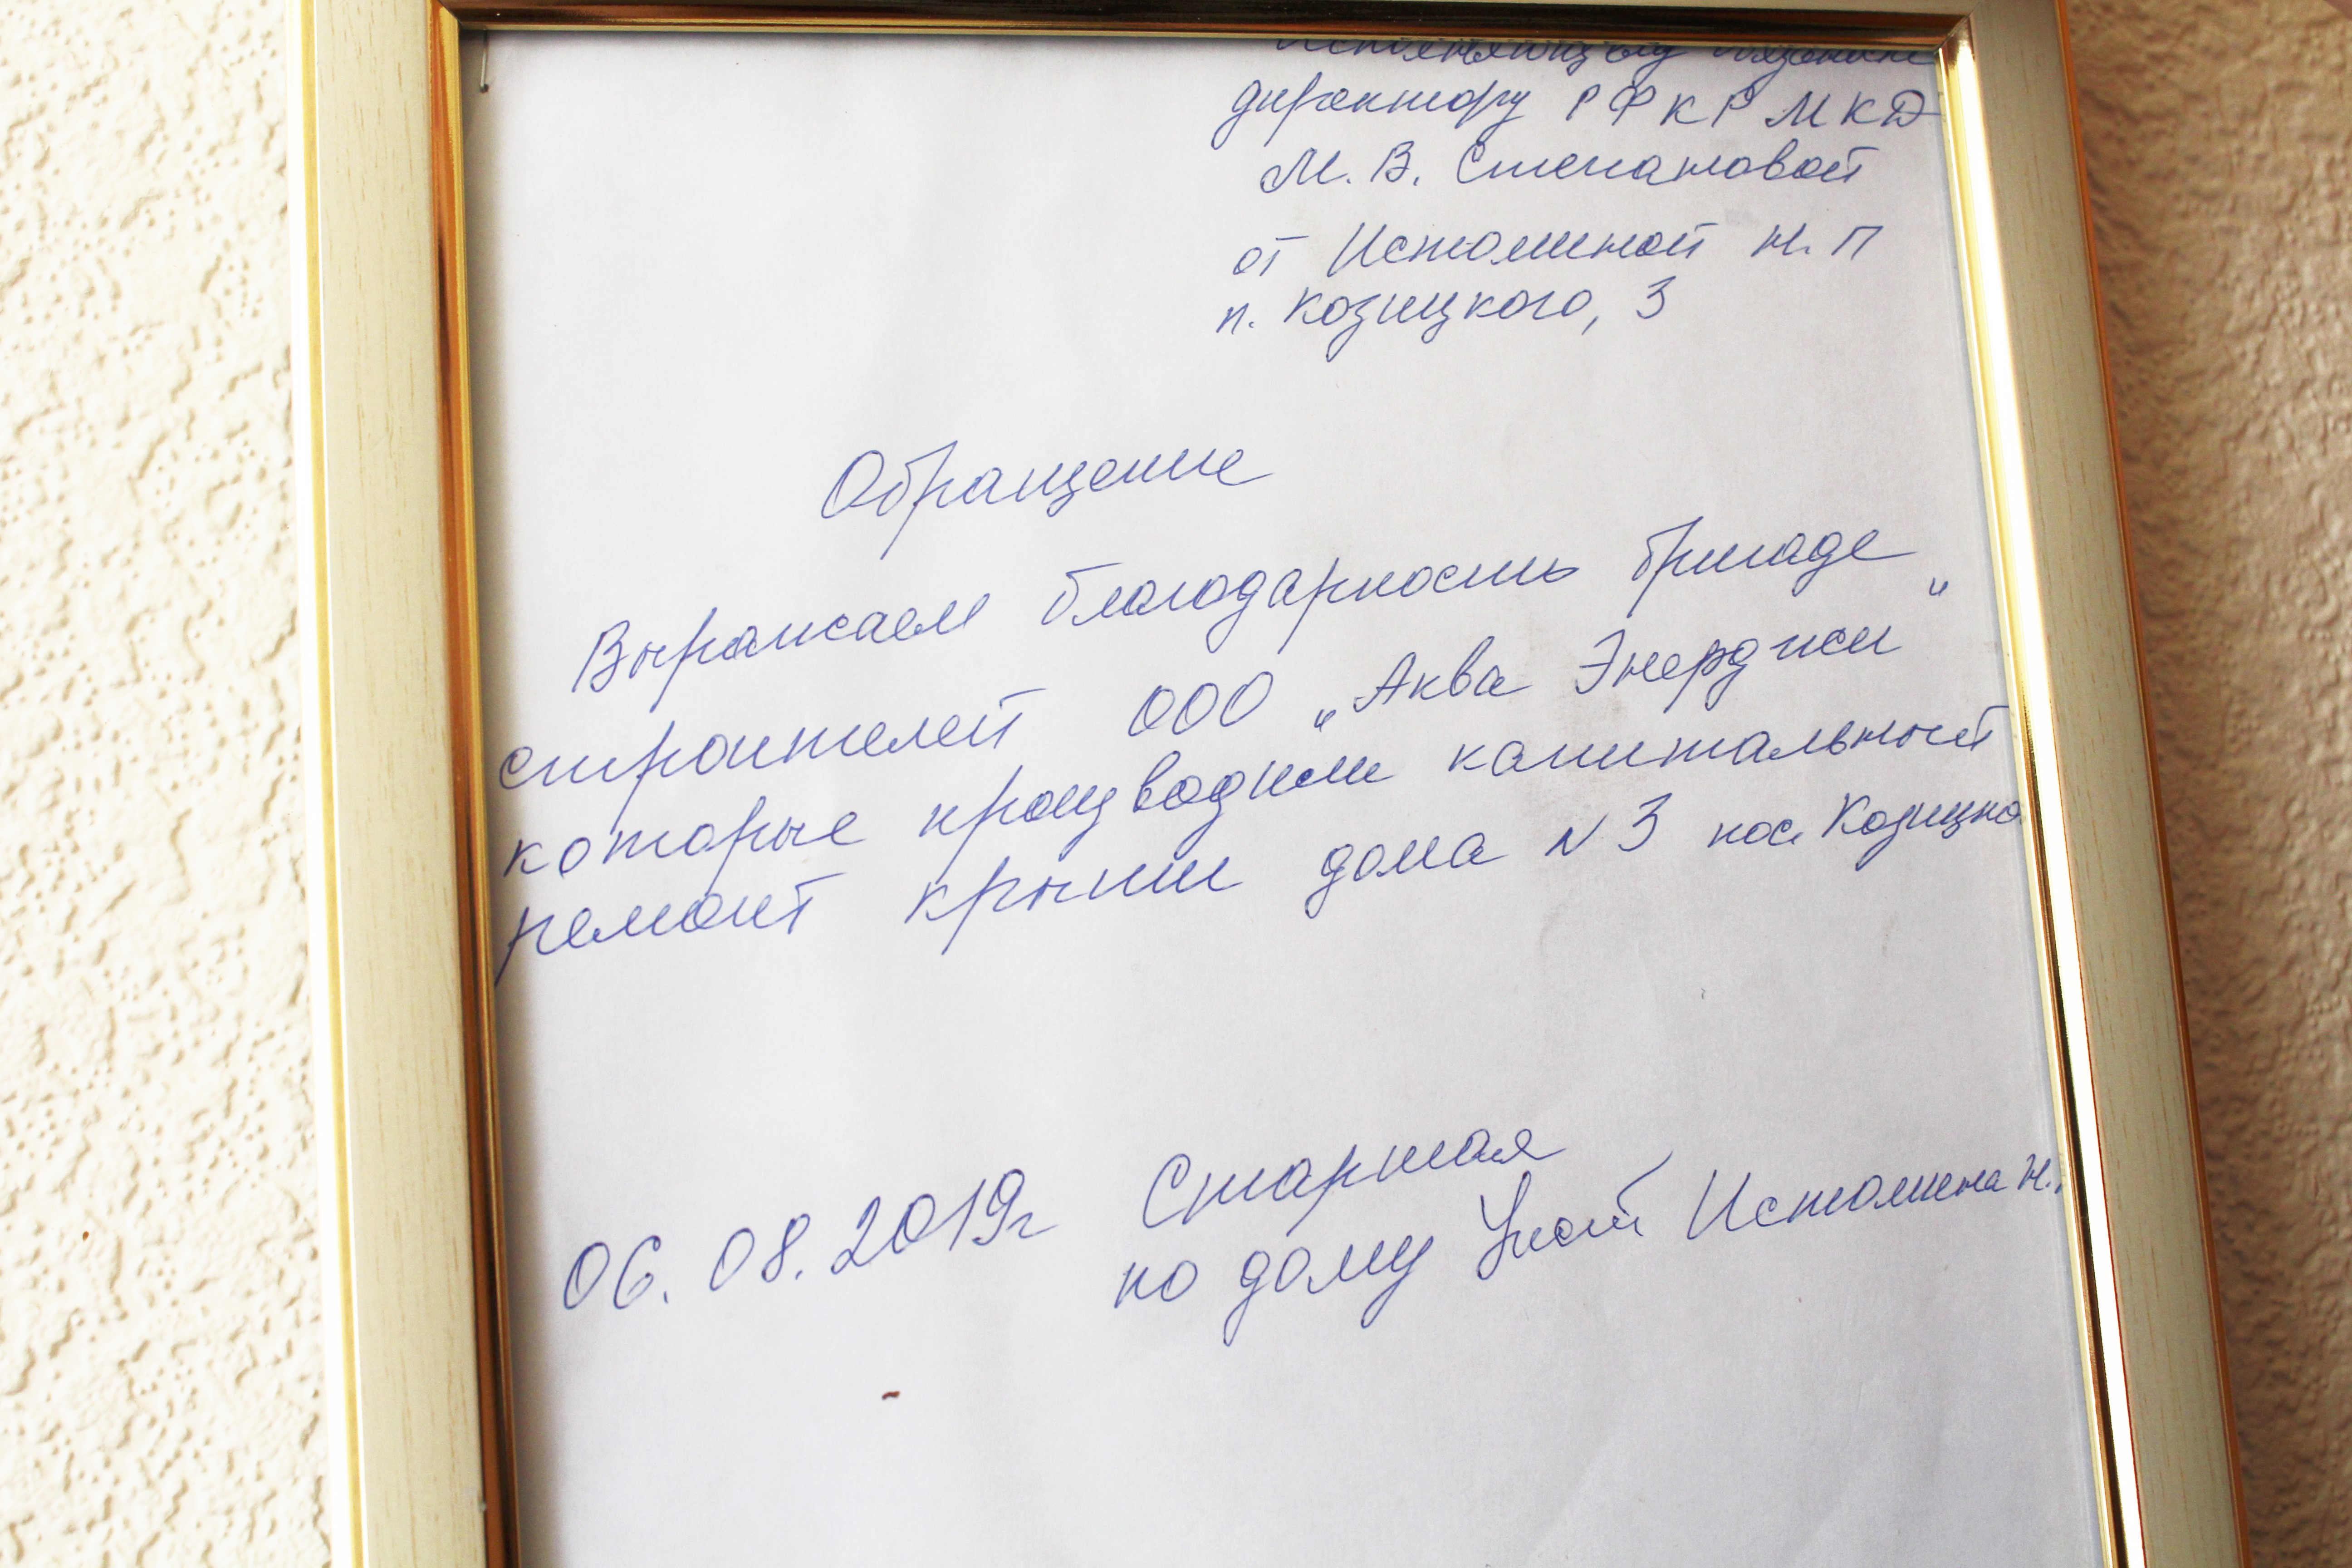 Исполняющему
директору РФКР МКД
М. В. Степановой
от Истоминой Н. П
п. Козицкого, 3
Обращение
Выражаем благодарность бригаде
строителей ООО „Аква Энерджи"
которые производили капитальный
ремонт крыши дома N 3 пос. Козицко
06. 08. 2019г Старшая
по дому Истомина Н.